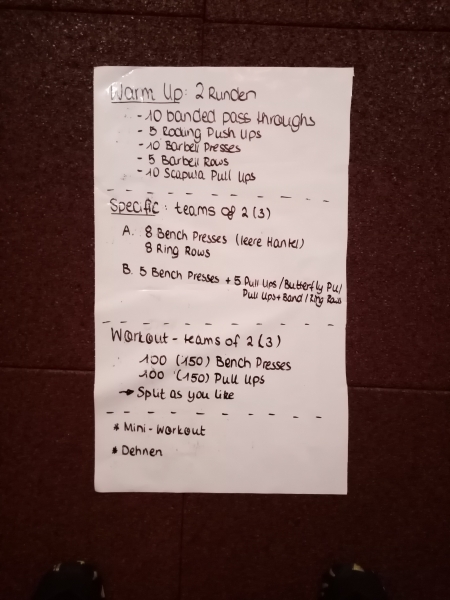 Warm Up: 2 Runden
- 10 banded pass throughs
- 5 Rocking Push Ups
- 10 Barbell Presses
- 5 Barbell Rows
- 10 Scapula Pull Ups
Specific: teams of 2 (3)
A. 8 Bench Presses (leere Hantel)
8 Ring Rows
B. 5 Bench Presses + 5 Pull Ups / Butterfly PU /
Pull Ups + Band / Ring Rows
Workout - teams of 2 (3)
100 (150) Bench Presses
100 (150) Pull Ups
→ Split as you like
* Mini-Workout
* Dehnen